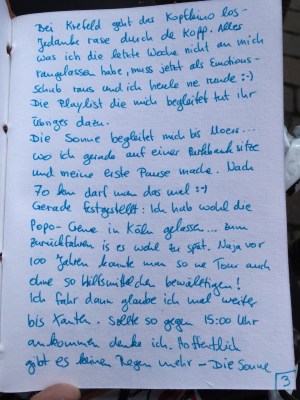 Bei Krefeld geht das Kopfkino los -
Gedanke rase durch de Kopp. Alles
was ich die letzte Woche nicht an mich
ranglassen habe, muss jetzt als Emotions-
Schub raus und ich heule ne runde :-)
Die Playlist die mich begleitet tut ihr
übriges dazu.
Die Sonne begleitet mich bis Moers...
wo ich gerade auf einer Parkbank sitze
und meine erste Pause mache. Nach
70 km darf man das mal :-)
Gerade festgestellt: Ich hab wohl die
Popo-Creme in Köln gelassen... zum
zurückfahren is es wohl zu spät. Naja vor
100 Jahren konnte man so ne Tour auch
ohne so Hilfsmittelchen bewältigen!
Ich fahr dann glaube ich mal weiter
bis Xanten. Sollte so gegen 15:00 Uhr
ankommen denke ich. Hoffentlich
gibt es keinen Regen mehr - Die Sonne
3